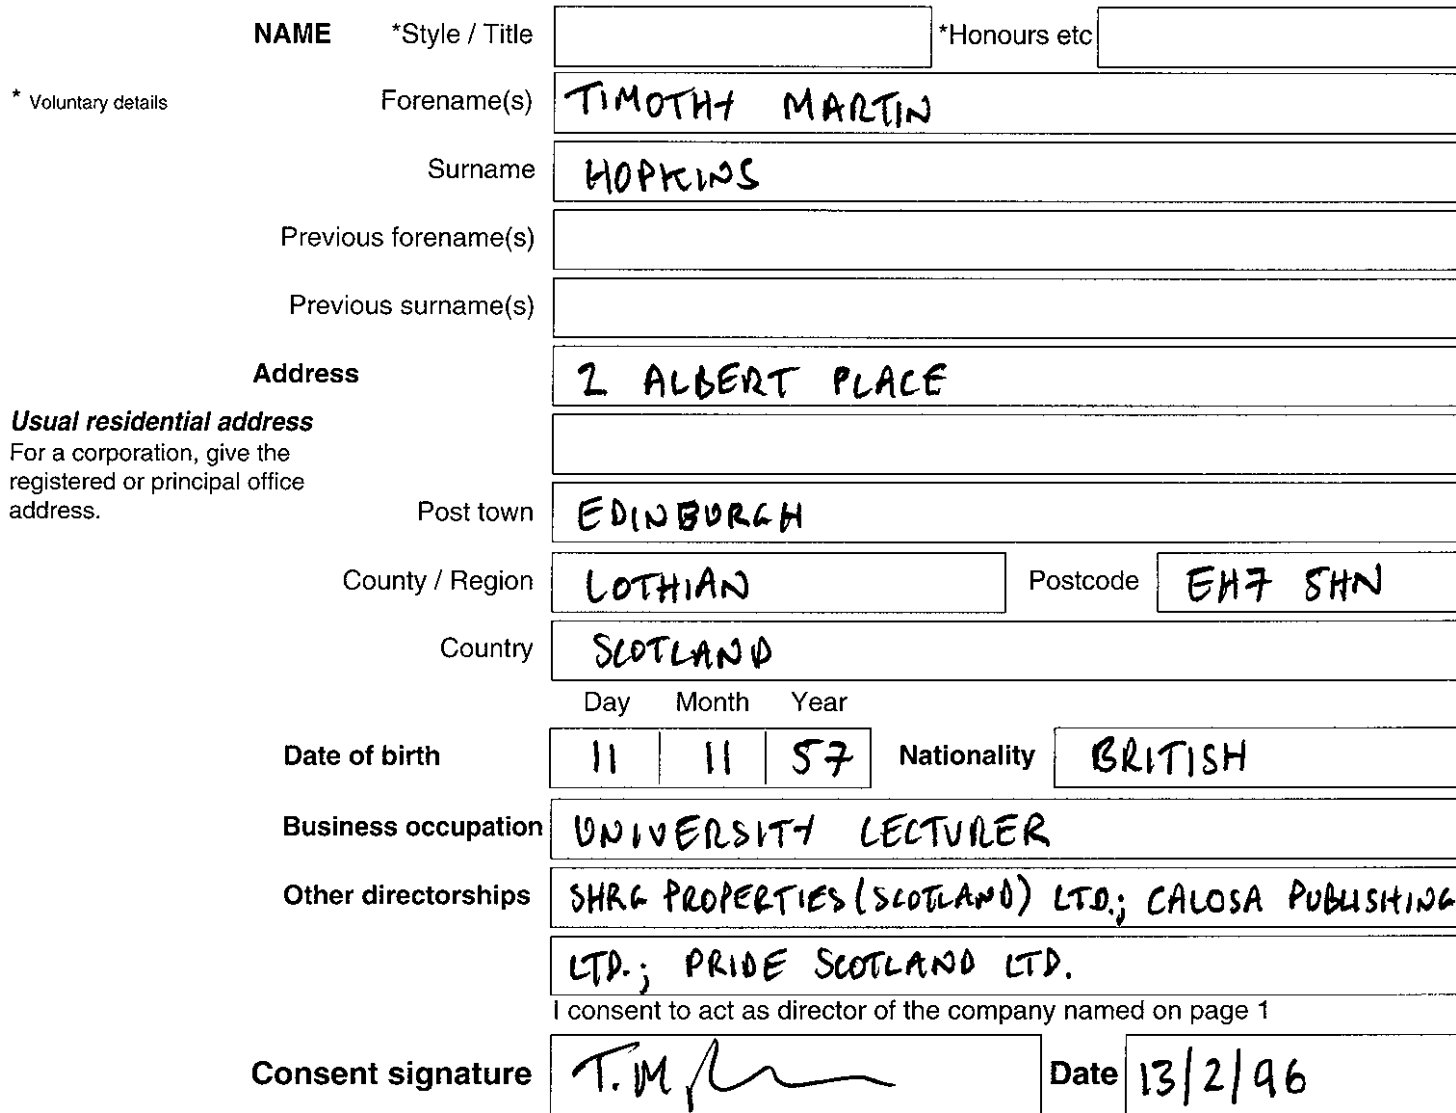 NAME *Style / Title *Honours etc
* Voluntary details Forename(s) TIMOTHY MARTIN
Surname HOPKINS
Previous forename(s)
Previous surname(s)
Address 2 ALBERT PLACE
Usual residential address
For a corporation, give the
registered or principal office
address.
Post town EDINBURGH
County / Region LOTHIAN Postcode EH7 5HN
Country SCOTLAND
Day Month Year
Date of birth 11 11 57 Nationality BRITISH
Business occupation UNIVERSITY LECTURER
Other directorships SHRG PROPERTIES (SCOTLAND) LTD.; CALOSA PUBLISHING
LTD.; PRIDE SCOTLAND LTD.
I consent to act as director of the company named on page 1
Consent signature T.M. Date 13/2/96